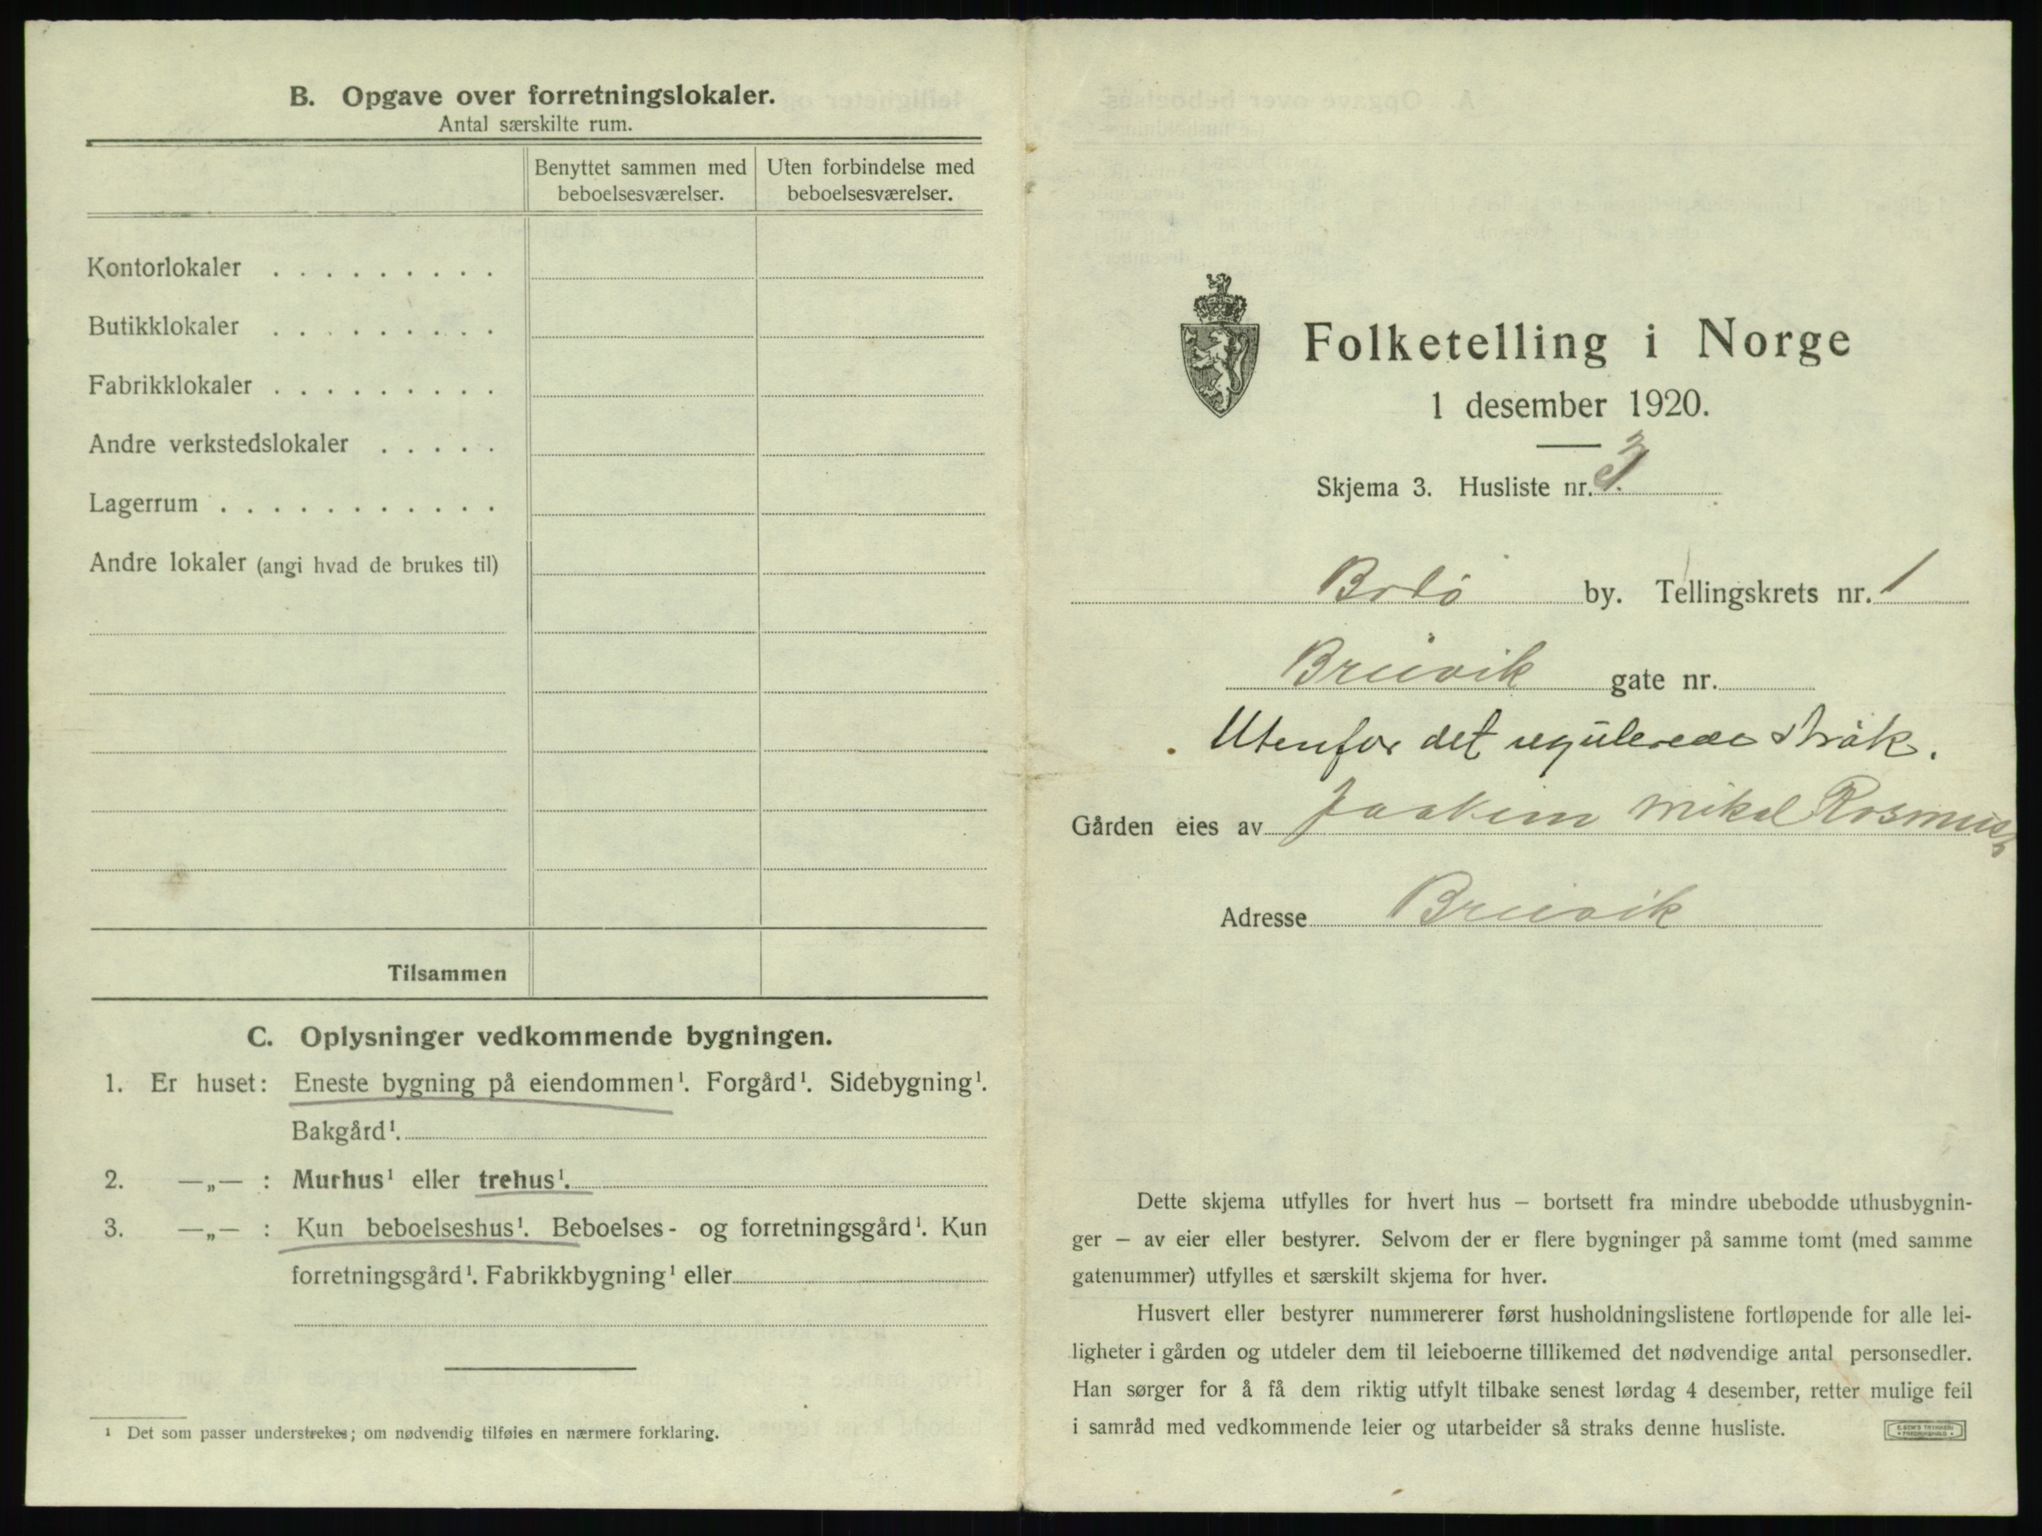 B. Opgave over forretningslokaler.
Antal særskilte rum.
Benyttet sammen med beboelsesværelser.
Uten forbindelse med beboelsesværelser.
Kontorlokaler . . . . . . . . .
Butikklokaler . . . . . . . . .
Fabrikklokaler . . . . . . . . .
Andre verkstedslokaler . . . . .
Lagerrum . . . . . . . . . . .
Andre lokaler (angi hvad de brukes til)
Tilsammen
C. Oplysninger vedkommende bygningen.
1. Er huset: Eneste bygning på eiendommen¹. Forgård¹. Sidebygning¹.
Bakgård¹.
2. —„— : Murhus¹ eller trehus¹.
3. —„— : Kun beboelseshus¹. Beboelses- og forretningsgård¹. Kun
forretningsgård¹. Fabrikkbygning¹ eller
¹ Det som passer understrekes; om nødvendig tilføies en nærmere forklaring.
Folketelling i Norge
1 desember 1920.
Skjema 3. Husliste nr. 3
Bodø by. Tellingskrets nr. 1
Breivik gate nr.
Utenfor det regulerede strøk.
Gården eies av Joakim Mikal Rosmus
Adresse Breivik
Dette skjema utfylles for hvert hus – bortsett fra mindre ubebodde uthusbygnin-
ger – av eier eller bestyrer. Selvom der er flere bygninger på samme tomt (med samme
gatenummer) utfylles et særskilt skjema for hver.
Husvert eller bestyrer nummererer først husholdningslistene fortløpende for alle lei-
ligheter i gården og utdeler dem til leieboerne tillikemed det nødvendige antal personsedler.
Han sørger for å få dem riktig utfylt tilbake senest lørdag 4 desember, retter mulige feil
i samråd med vedkommende leier og utarbeider så straks denne husliste.